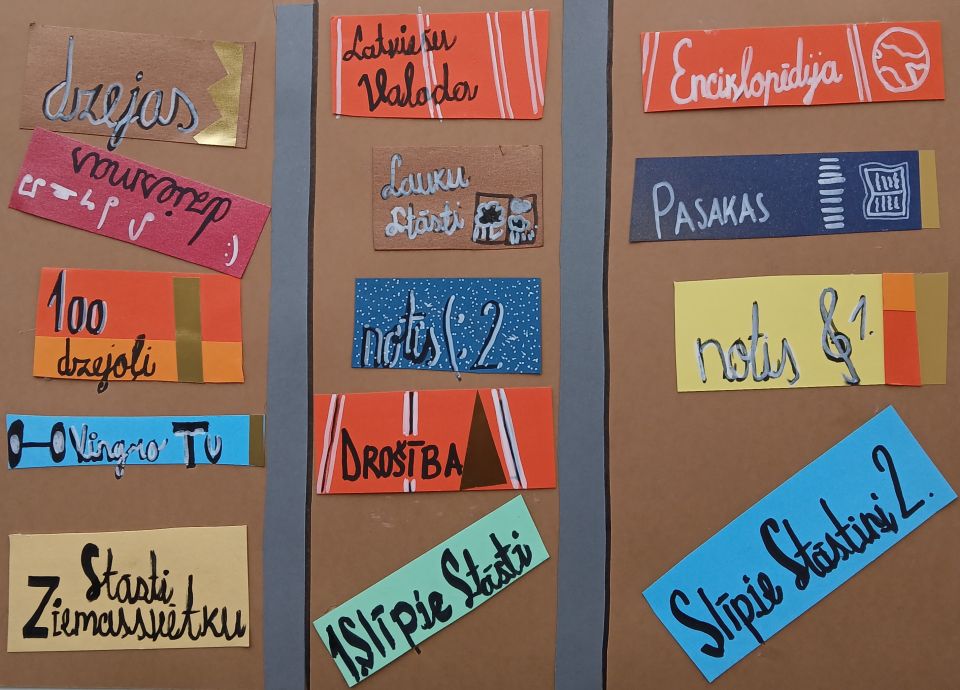 dzejas
dziesmas
:)
100
dzejoļi
Vingro Tu
Stasti
Ziemassvētku
Latviešu
Valoda
Lauku
Stāsti
notis 2.
DROŠĪBA
1.Slīpie Stāsti
Enciklopēdija
PASAKAS
notis 1.
Slīpie Stāstiņi 2.